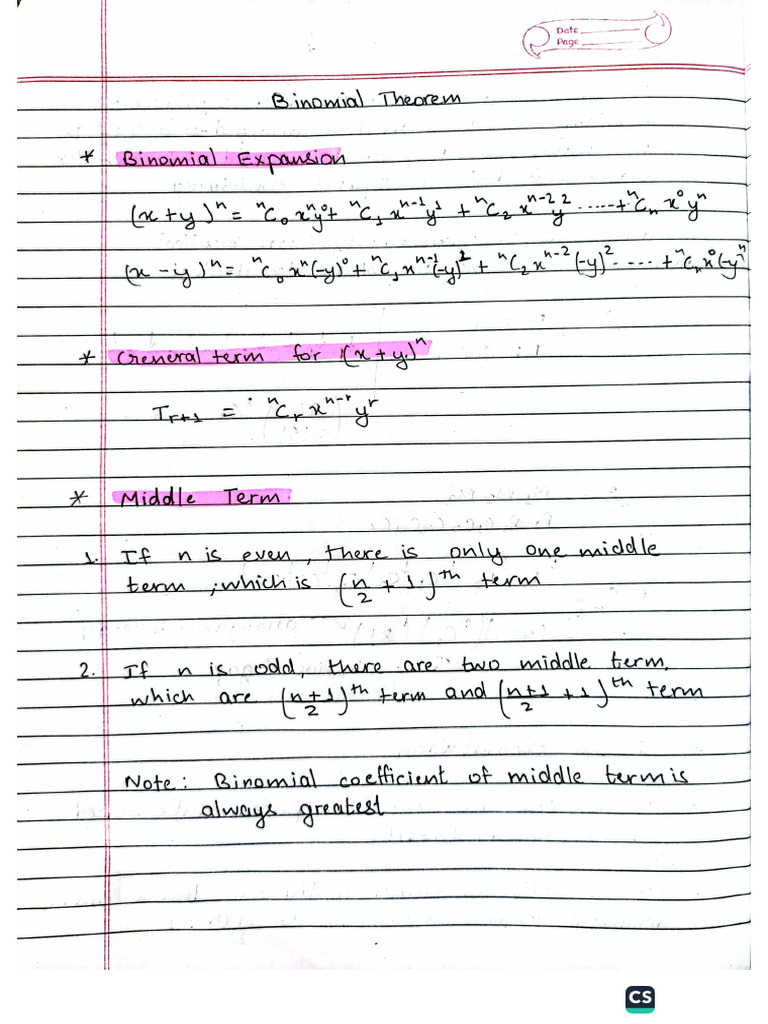 Date
Page
Binomial Theorem
* Binomial Expansion
(x + y)ⁿ = ⁿC₀ xⁿy⁰ + ⁿC₁ xⁿ⁻¹y¹ + ⁿC₂ xⁿ⁻²y² ..... + ⁿCₙ x⁰yⁿ
(x - y)ⁿ = ⁿC₀ xⁿ(-y)⁰ + ⁿC₁ xⁿ⁻¹(-y)² + ⁿC₂ xⁿ⁻²(-y)² ..... + ⁿCₙ x⁰(-y)ⁿ
* General term for (x + y)ⁿ
Tᵣ₊₁ = ⁿCᵣ xⁿ⁻ʳ yʳ
* Middle Term
1. If n is even, there is only one middle
term, which is (n/2 + 1)ᵗʰ term
2. If n is odd, there are two middle term,
which are (n+1/2)ᵗʰ term and (n+1/2 + 1)ᵗʰ term
Note: Binomial coefficient of middle term is
always greatest
CS